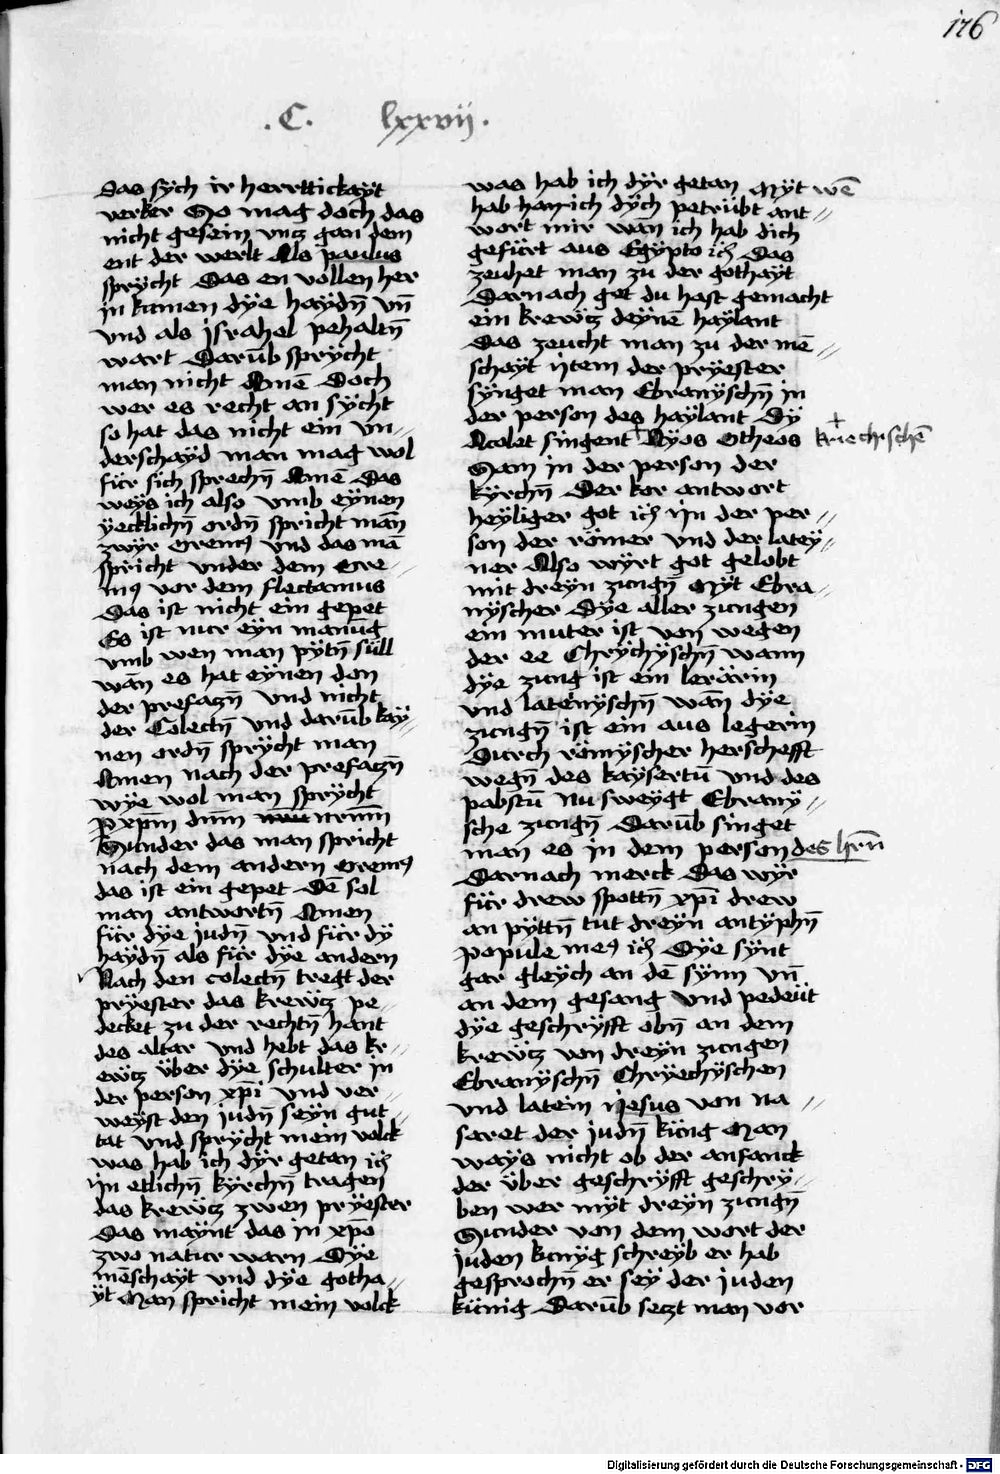 176
.C. lxxvij.
das sÿch ir herrttickaÿt
verker So mag doch das
nicht gesein vntz gan dem
ent der werlt Als paulus
sprÿcht Das en vollen her
in kumen dÿe haÿdn̄ vn̄
vnd als jsrahel pehaltn̄
wart Darūb sprÿcht
man nicht Amē Doch
wer es recht an sÿcht
so hat das nicht ein vn-
derschaÿd man mag wol
für sich sprechn̄ Amē Das
weÿs ich also vmb eÿnen
ÿecklichn̄ ordn̄ spricht mān
zwÿr oremꝯ vnd das mā
spricht vnder dem ore-
mꝯ vor dem flectamus
Das ist nicht ein gepet
Es ist nur eÿn manūg
vmb wen man pÿtn̄ süll
wān es hat eÿnen don
der prefaczn̄ vnd nicht
der Colectn̄ vnd darūb kaÿ-
nen ordn̄ sprÿcht man
Amen nach der prefaczn̄
wÿe wol man sprÿcht
p xp̄m dnm̄ nrm̄
Sunder das man spricht
nach dem andern oremꝯ
das ist ein gepet Dē sol
man antwortn̄ Amen
für dÿe judn̄ vnd für dÿ
haÿdn̄ als für dÿe andern
Nach den colectn̄ tregt der
prÿester das krewtz pe-
decket zu der rechtn̄ hant
des altar vnd hebt das kr-
ewtz über dÿe schulter in
der person xp̄i vnd ver-
weÿst den judn̄ seÿn gut
tat vnd sprÿcht mein volck
was hab ich dÿr getan ic̄
ÿn etlichn̄ kÿrchn̄ tragen
das krewtz zwen prÿester
Das maÿnt das in xp̄o
zwo natur warn Dÿe
mēschaÿt vnd dÿe gotha-
ÿt Man spricht mein volck
was hab ich dÿr getan Mÿt wē
hab han ich dÿch petrübt ant-
wort mir wān ich hab dich
gefürt aus Egÿpto ic̄ Das
zeuhet man zu der gothaÿt
Darnach get du hast gemacht
ein krewtz deÿnē haÿlant
Das zeucht man zu der mē-
schaÿt ÿtem der prÿester
sÿnget man Ebranÿschn̄ in
der person des haÿlant Dÿ
Acolet singent Aÿos otheos + kriechschē
Sam in der person der
kÿrchn̄ Der kor antwort
heÿliger got ic̄ ÿn der per-
son der römer vnd der lateÿ-
ner Also wÿrt got gelobt
mit dreÿn zungn̄ Mÿt Ebra-
nÿscher Dÿe aller zungen
ein muter ist von wegen
der ee Chrÿchÿschn̄ wann
dÿe zung ist ein lerärin
vnd latenÿschn̄ wān dÿe
zungn̄ ist ein aus legerin
Durch römÿscher herschefft
wegn̄ des kaÿsertū vnd des
pabstū Nu sweÿgt Ebranÿ-
sche zungn̄ Darūb singet
man es in dem person des hrn̄
Darnach merck Das wÿr
für drew spottn̄ xp̄i drew
an pÿttn̄ tut dreÿn antÿphn̄
popule meꝯ ic̄ Dÿe sÿnt
gar gleÿch an dē sÿnn vn̄
an dem gesang vnd pedeüt
dÿe geschrÿfft obn̄ an dem
krewtz von dreÿn zungen
Ebranÿschn̄ Chrÿechÿschen
vnd latein ÿesus von na-
saret der judn̄ küng Man
waÿs nicht ob der anfanck
der über geschrÿfft geschrÿ-
ben wer mÿt dreÿn zungn̄
Sunder von dem wort der
juden kunÿg schreÿb er hab
gesprochn̄ er seÿ der juden
künig Darūb setzt man vor
Digitalisierung gefördert durch die Deutsche Forschungsgemeinschaft - DFG